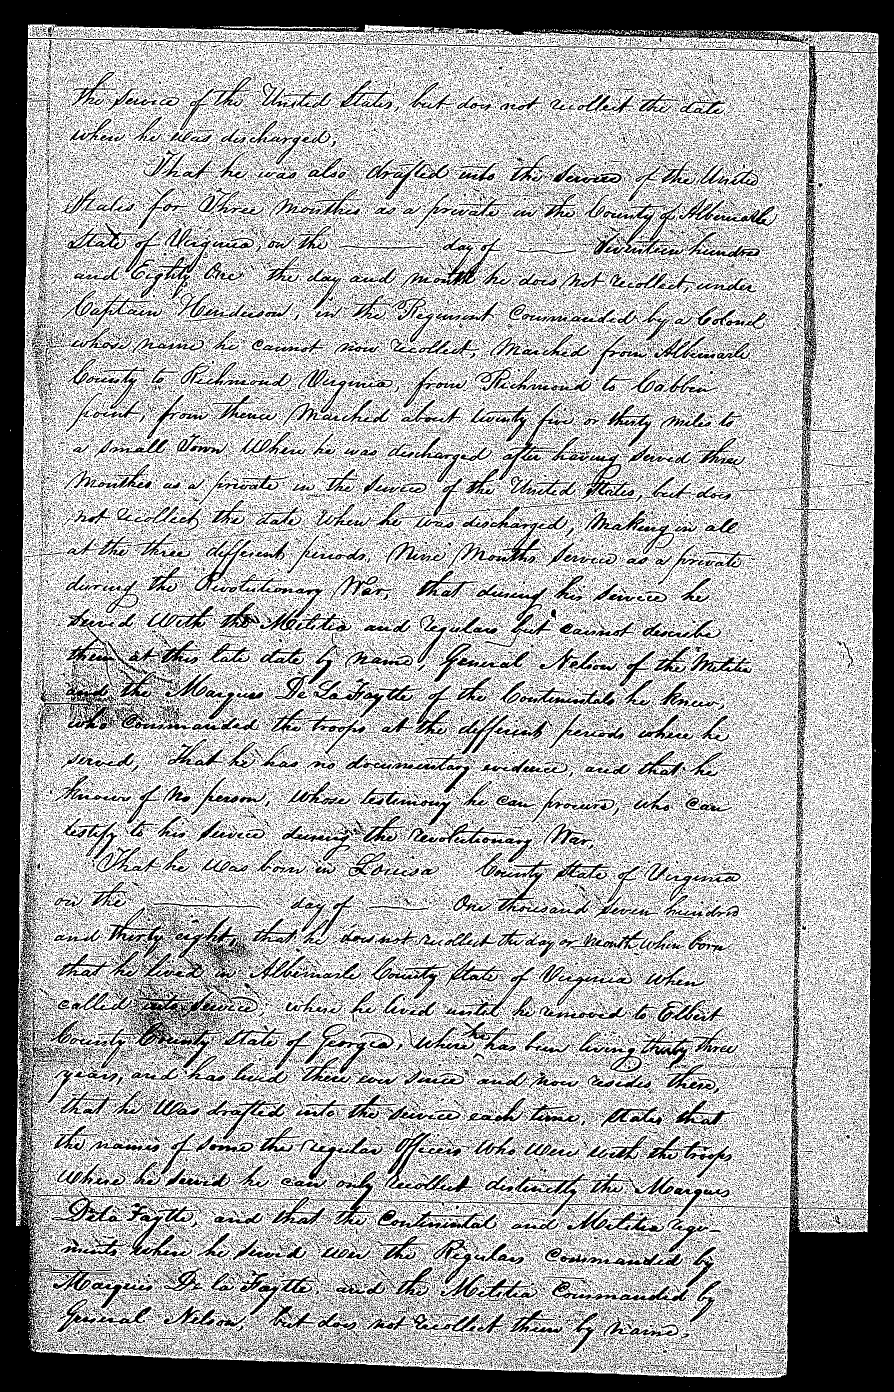 the Service of the United States, but does not recollect the date
when he was discharged,
That he was also drafted into the Service of the United
States for Three Months as a private in the County of Albemarle
State of Virginia, on the ——— day of ——— Seventeen hundred
and Eighty One the day and month he does not recollect, under
Captain Henderson, in the Regiment Commanded by a Colonel
whose name he cannot now recollect, Marched from Albemarle
County to Richmond Virginia, from Richmond to Cabbin
point, from thence Marched about twenty five or thirty miles to
a small Town Where he was discharged after having served three
Months as a private in the Service of the United States, but does
not recollect the date When he was discharged, Making in all
at the three different periods, Nine Months Service as a private
during the Revolutionary War, that during his service he
served With the Melitia and regulars but cannot describe
them at this late date by name, General Nelson of the Melitia
and the Marques De La Faytte of the Continentals he knew,
who Commanded the troops at the different periods where he
served, That he has no documentary evidence, and that he
knows of No person, whose testimony he can procure, who can
testify to his Service during the revolutionary War,
That he was born in Louisa County State of Virginia
on the ——— day of ——— One thousand seven hundred
and thirty eight, that he does not recollect the day or Month When born
that he lived in Albemarle County State of Virginia when
called into service, where he lived until he removed to Elbert
County County State of Georgia, where he has been living thirty three
years, and has lived there ever since and now resides there,
that he Was drafted into the service each time, States that
the names of some the regular Officers Who were with the troops
Where he served he can only recollect distinctly the Marques
De la Faytte, and that the Continental and Melitia regi-
ments where he served wer the Regulars Commanded by
Marques De la Faytte, and the Melitia Commanded by
General Nelson, but does not recollect them by name.